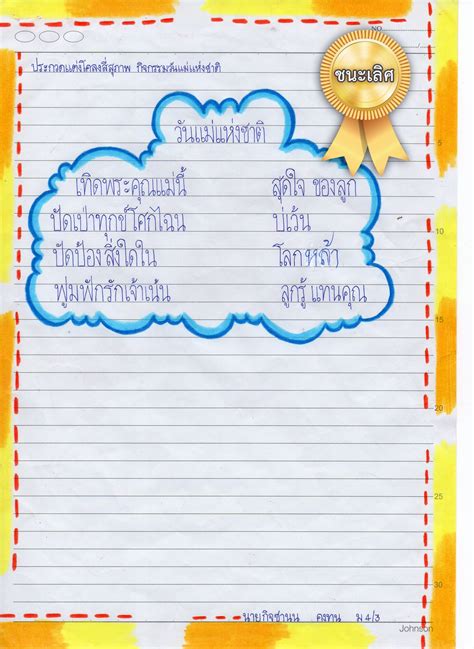 NO.
ประกวดแต่งโคลงสี่สุภาพ กิจกรรมวันแม่แห่งชาติ
ชนะเลิศ
วันแม่แห่งชาติ
เทิดพระคุณแม่นี้ สุดใจ ของลูก
ปัดเป่าทุกข์โศกไฉน บ่เว้น
ปัดป้องสิ่งใดใน โลกหล้า
ฟูมฟักรักเจ้าเน้น ลูกรู้ แทนคุณ
5
10
15
20
25
30
นายกิจชานน คงทน ม 4/3
Johnson